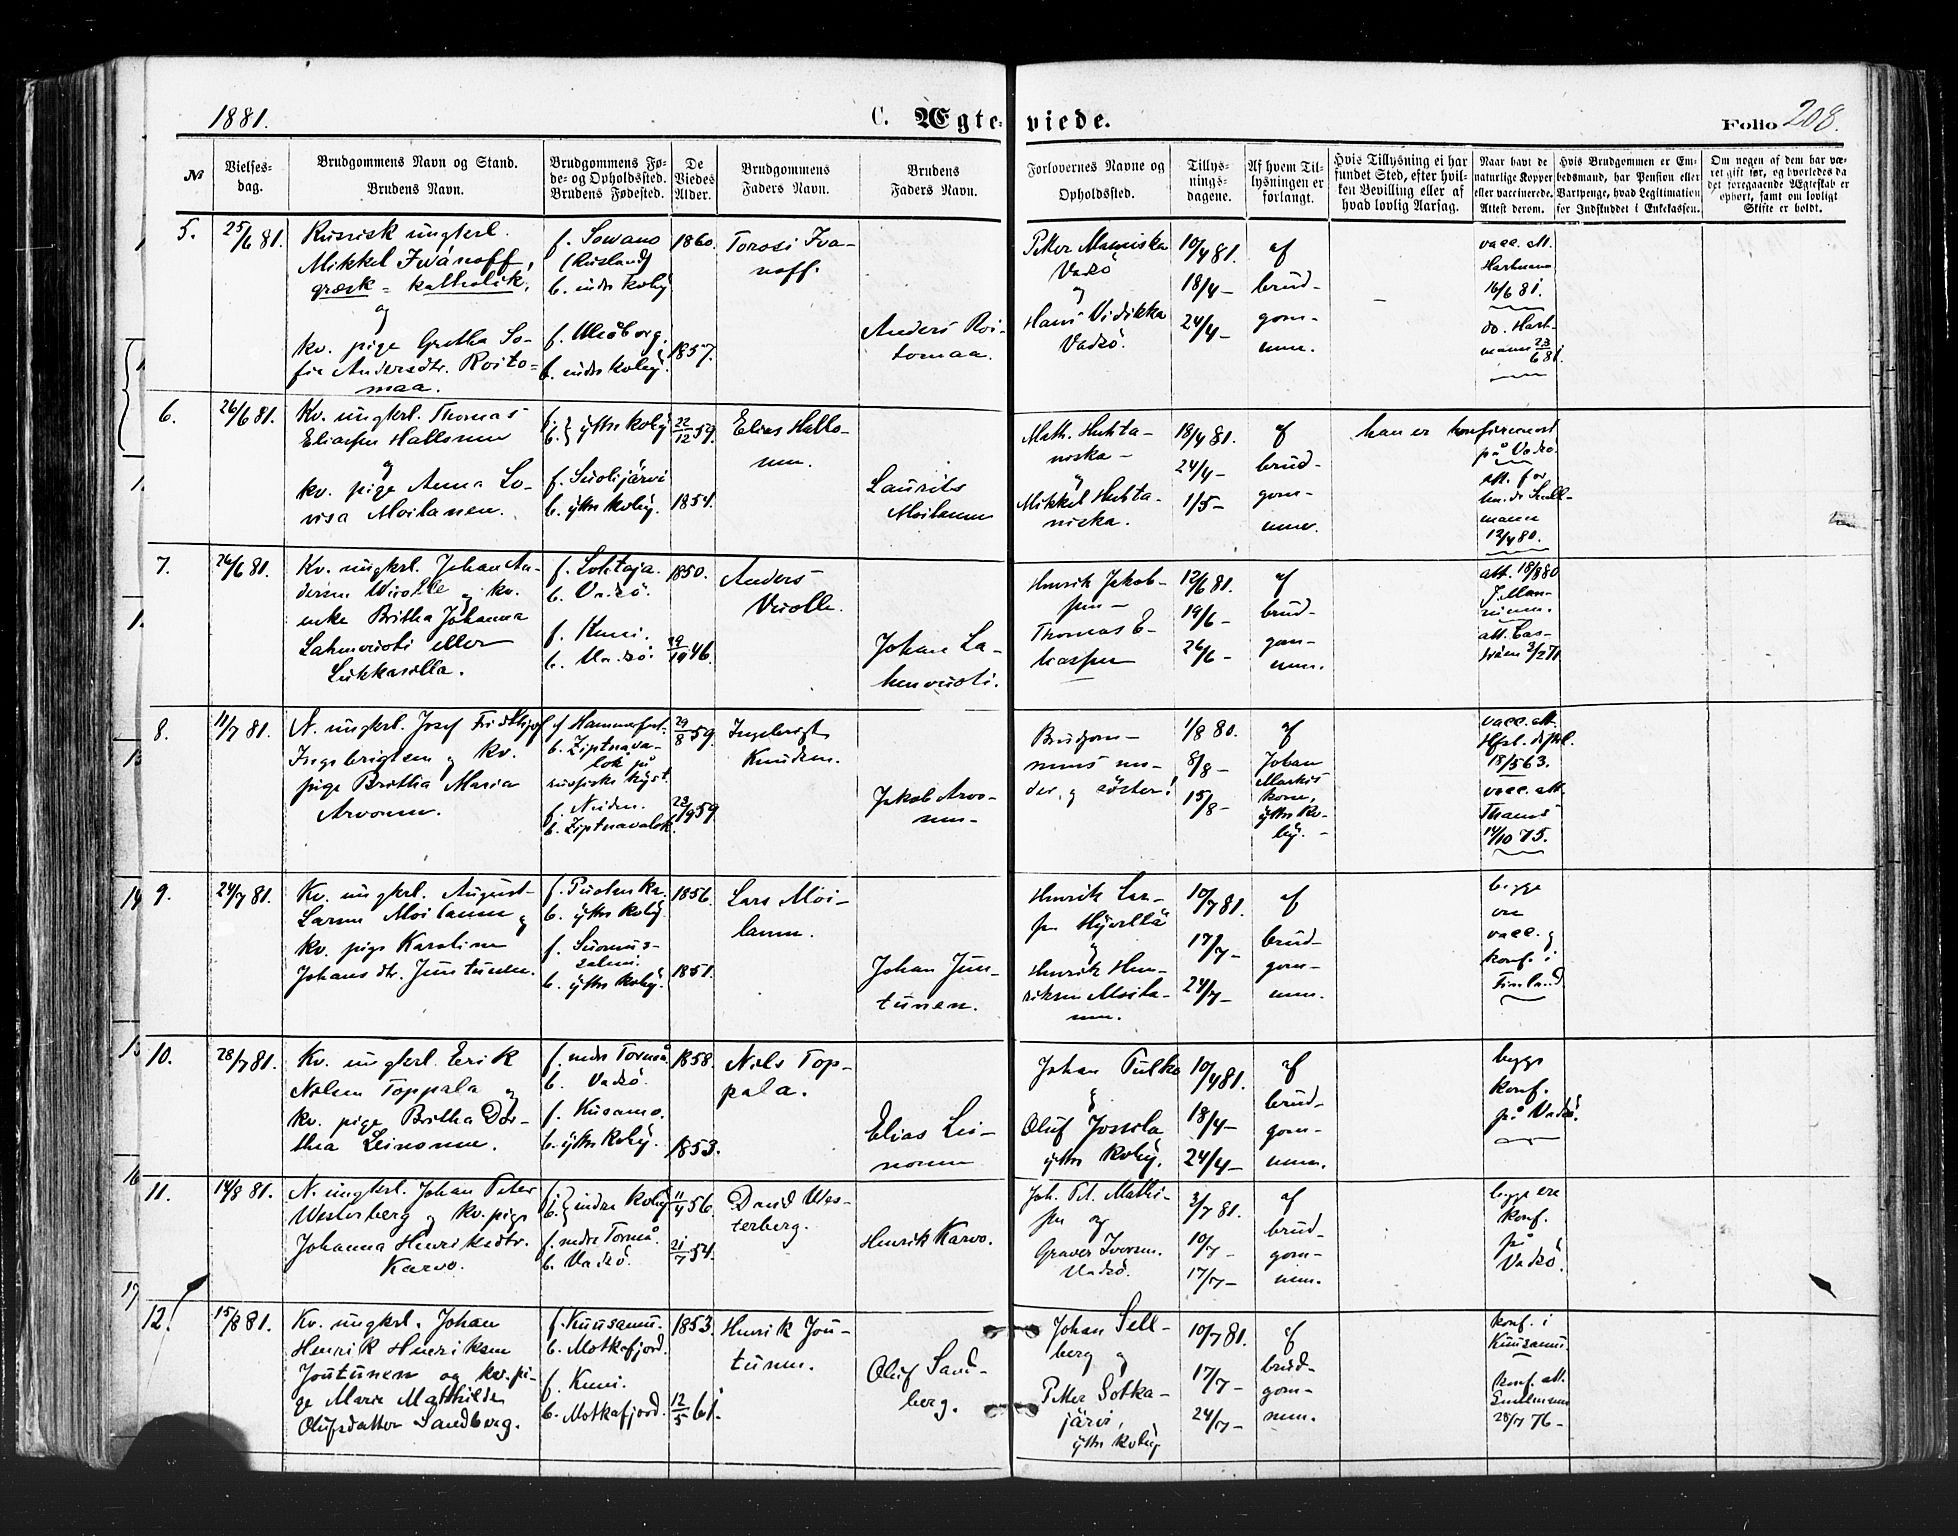 1881.
C. Ægteviede.
Folio 208.
№
Vielsesdag.
Brudgommens Navn og Stand.
Brudens Navn.
Brudgommens Føde- og Opholdssted.
Brudens Fødested.
De Viedes Alder.
Brudgommens Faders Navn.
Brudens Faders Navn.
Forlovernes Navne og Opholdssted.
Tillysningsdagene.
Af hvem Tillysningen er forlangt.
Hvis Tillysning ei har fundet Sted, efter hvilken Bevilling eller af hvad lovlig Aarsag.
Naar havt de naturlige Kopper eller vaccinerede. Attest derom.
Hvis Brudgommen er Embedsmand, har Pension eller Vartpenge, hvad Legitimation for Indskuddet i Enkekassen.
Om nogen af dem har været gift før, og hvorledes da det foregaaende Ægteskab er ophørt, samt om lovligt Skifte er holdt.
5.
25/6 81.
Russisk ungkerl.
Mikkel Ivánoff,
græsk-katholik,
og
kv. pige Gretha So-
fie Andersdtr. Roito-
maa.
f. Sowano
(Rusland)
b. indre Kobÿ
f. Uleåborg.
b. indre Kobÿ.
1860.
1857.
Torosi Iva-
noff.
Anders Roi-
tomaa.
Petter Manniska
Vadsö
og
Hans Vidikka
Vadsö.
10/4 81.
18/4 –
24/4 –
af
brud-
gom-
men.
–
vacc. att.
Hartmann
16/6 81.
do. Hart-
mann 23/6 81.
6.
26/6 81.
Kv. ungkrl. Thomas
Eliassen Hallonen
og
kv. pige Anna Lo-
visa Moilanen.
f. b. } ÿttre Kobÿ
f. Suolijärvi
b. ÿttre Kobÿ.
22/12 59.
1854.
Elias Hallo-
nen.
Laurits
Moilanen
Math. Huhta-
niska –
og
Mikkel Huhta-
niska.
18/4 81.
24/4 –
1/5 –
af
brud-
gom-
men.
han er konfirmeret
på Vadsö.
att. for
12/4 80.
7.
26/6 81.
Kv. ungkrl. Johan An-
dersen Wirolle og kv.
enke Britha Johanna
Lahenvuoti eller
Liikkasilla.
f. Lohtaja.
b. Vadsö.
f. Kemi.
b. Vadsö.
1850.
29/10 46.
Anders
Virolle.
Johan La-
henvuoti.
Henrik Jakob-
sen –
Thomas E-
liassen
12/6 81.
19/6 –
26/6 –
af
brud-
gom-
men.
att. 18/8 80
att. Cas-
trèn 3/2 71
8.
11/7 81.
N. ungkrl. Josef Fridthjof
Ingebrigtsen og kv.
pige Britha Maria
Arvonen.
f. Hammerfest.
b. Ziptnava-
lok på
russiske kÿst.
f. Neiden.
b. Ziptnavalok.
29/8 59.
23/9 59.
Ingebrigt
Knudsen.
Jakob Arvo-
nen –
Brudgom-
mens mo-
der, og söster!
1/8 80.
8/8 –
15/8 –
af
Johan
Markus
kone,
ÿttre Ko-
bÿ. –
vacc. att.
18/5 63.
vacc. att.
14/10 75.
9.
24/7 81.
Kv. ungkrl. August
Larsen Moilanen og
kv. pige Karoline
Johansdtr. Juntunen.
f. Puolanka.
b. ÿttre Kobÿ.
f. Suomus-
salmi.
b. ÿttre Kobÿ.
1856.
1851.
Lars Moi-
lanen.
Johan Jun-
tunen.
Henrik Lar-
sen Hÿvellä
og
Henrik Hen-
riksen Moila-
nen.
10/7 81.
17/7 –
24/7 –
af
brud-
gom-
men.
begge
ere
vacc. og
konf. i
Finland
10.
28/7 81.
Kv. ungkerl. Erik
Nilsen Toppala og
kv. pige Britha Dor-
thea Leinonen.
f. nedre Torneå.
b. Vadsö.
f. Kusamo.
b. ÿttre Kobÿ.
1858.
1853.
Nils Top-
pala.
Elias Lei-
nonen
Johan Pulko
&
Oluf Jossila
ÿttre Kobÿ.
10/4 81.
18/4 –
24/4 –
af
brud-
gom-
men.
begge
konf.
på Vadsö.
11.
14/8 81.
N. ungkrl. Johan Peter
Westerberg og kv. pige
Johanna Henriksdtr.
Karvo.
f. b. } indre Kobÿ
f. nedre Torneå.
b. Vadsö.
11/4 56.
21/7 54.
David Wes-
terberg.
Henrik Karvo.
Joh. Pet. Mathi-
sen og
Graver Iversen.
Vadsö.
3/7 81.
10/7 –
17/7 –
af
brud-
gom-
men.
begge ere
konf.
på
Vadsö.
12.
15/8 81.
Kv. ungkrl. Johan
Henrik Henriksen
Joutunen og kv. pi-
ge Marie Matthilde
Olufsdatter Sandberg.
f. Kuusamu.
b. Motkafjord.
f. Kemi.
b. Motkafjord.
1853.
12/5 61.
Henrik Jou-
tunen.
Oluf Sand-
berg.
Johan Sell-
berg og
Petter Sotka-
järvi,
ÿttre Kobÿ
10/7 81.
17/7 –
24/7 –
af
brud-
gom-
men.
konf. i
Kuusamu.
konf. att.
28/7 76 –